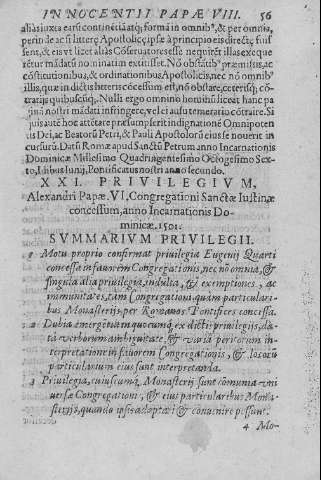 INNOCENTII PAPÆ VIII. 56
alias iuxta earũ continẽtiã atq; formã in omnibꝰ, & per omnia,
perinde ac si litterę Apostolicę, ipsę à principio eis directę fuis
sent, & eis vt licet aliàs Cõseruatores esse nequiret illas exeque
rẽtur mãdatũ nominatim extitisset. Nõ obstãtibꝰ præmissis, ac
cõstitutionibus, & ordinationibus Apostolicis, nec nõ omnibꝰ
illis, quæ in dictis litteris cõcessum est, nõ obstare, ceterisq; cõ-
trarijs quibuscũq;. Nulli ergo omnino hominũ liceat hanc pa
ginã nostri mãdati infringere, vel ei ausu temerario cõtraire. Si
quis autẽ hoc attẽtare præsumpserit indignationẽ Omnipotẽ
tis Dei, ac Beatorũ Petri, & Pauli Apostolorũ eius se nouerit in
cursurũ. Datũ Romæ apud Sanctũ Petrum anno Incarnationis
Dominicæ Millesimo Quadringentesimo Octogesimo Sex-
to, Idibus Iunij, Pontificatus nostri anno secundo.
XXI. PRIVILEGIVM,
Alexandri Papæ. VI, Congregationi Sanctæ Iustinæ
concessum, anno Incarnationis Do-
minicæ. 1501.
SVMMARIVM PRIVILEGII.
Motu proprio confirmat priuilegia Eugenij Quarti
concessa in fauorem Congregationis, nec nõ omnia, &
singula alia priuilegia, indulta, & exemptiones, ac
immunitates, tam Congregationi, quàm particulari-
bus Monasterijs, per Romanos Pontifices concessa.
2 Dubia emergẽtia in quocunq; ex dictis priuilegijs, da-
ta verborum ambiguitate, & varia peritorum in-
terpretatione in fauorem Congregationis, & locorũ
particularium eius sunt interpretanda.
3 Priuilegia, cuiuscumq; Monasterij sunt cõmunia vni
uersæ Congregationi, & eius particularibus Mona-
sterijs, quando ipsis adaptari & conuenire possunt.
4 Mo-